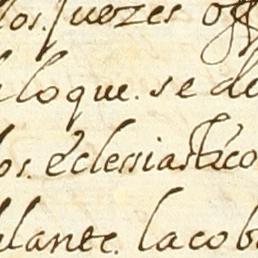 los. Juezes off
loque. se de
os. ecclesiastico
lante. lacob